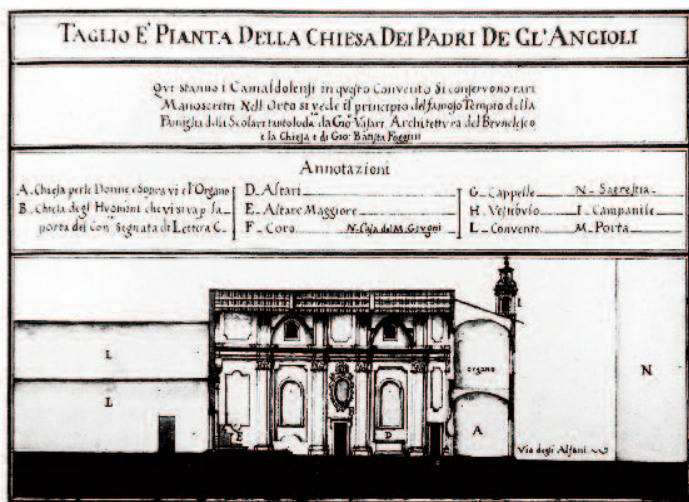 TAGLIO E' PIANTA DELLA CHIESA DEI PADRI DE GL'ANGIOLI
Qui stanno i Camaldolensi in questo Convento Si conservono rari
Manoscritti Nell Orto si vede il principio del famoso Tempio della
Famiglia delli Scolari tanto loda da Gio. Vasari Architettura del Brunelesco
e la Chiesa e di Gio. Batista Foggini
Annotazioni
A. Chiesa per le Donne e Sopra vi e l'Organo
B. Chiesa degl Huomini che vi si va p la
porta del Con Segnata di Lettera C.
D. Altari
E. Altare Maggiore
F. Coro N. Casa del M. Givgni
G. Cappelle
H. Vestibvlo
L. Convento
N. Sagrestia
I. Campanile
M. Porta
I
L
organo
N
L
E
D
A
Via degli Alfani